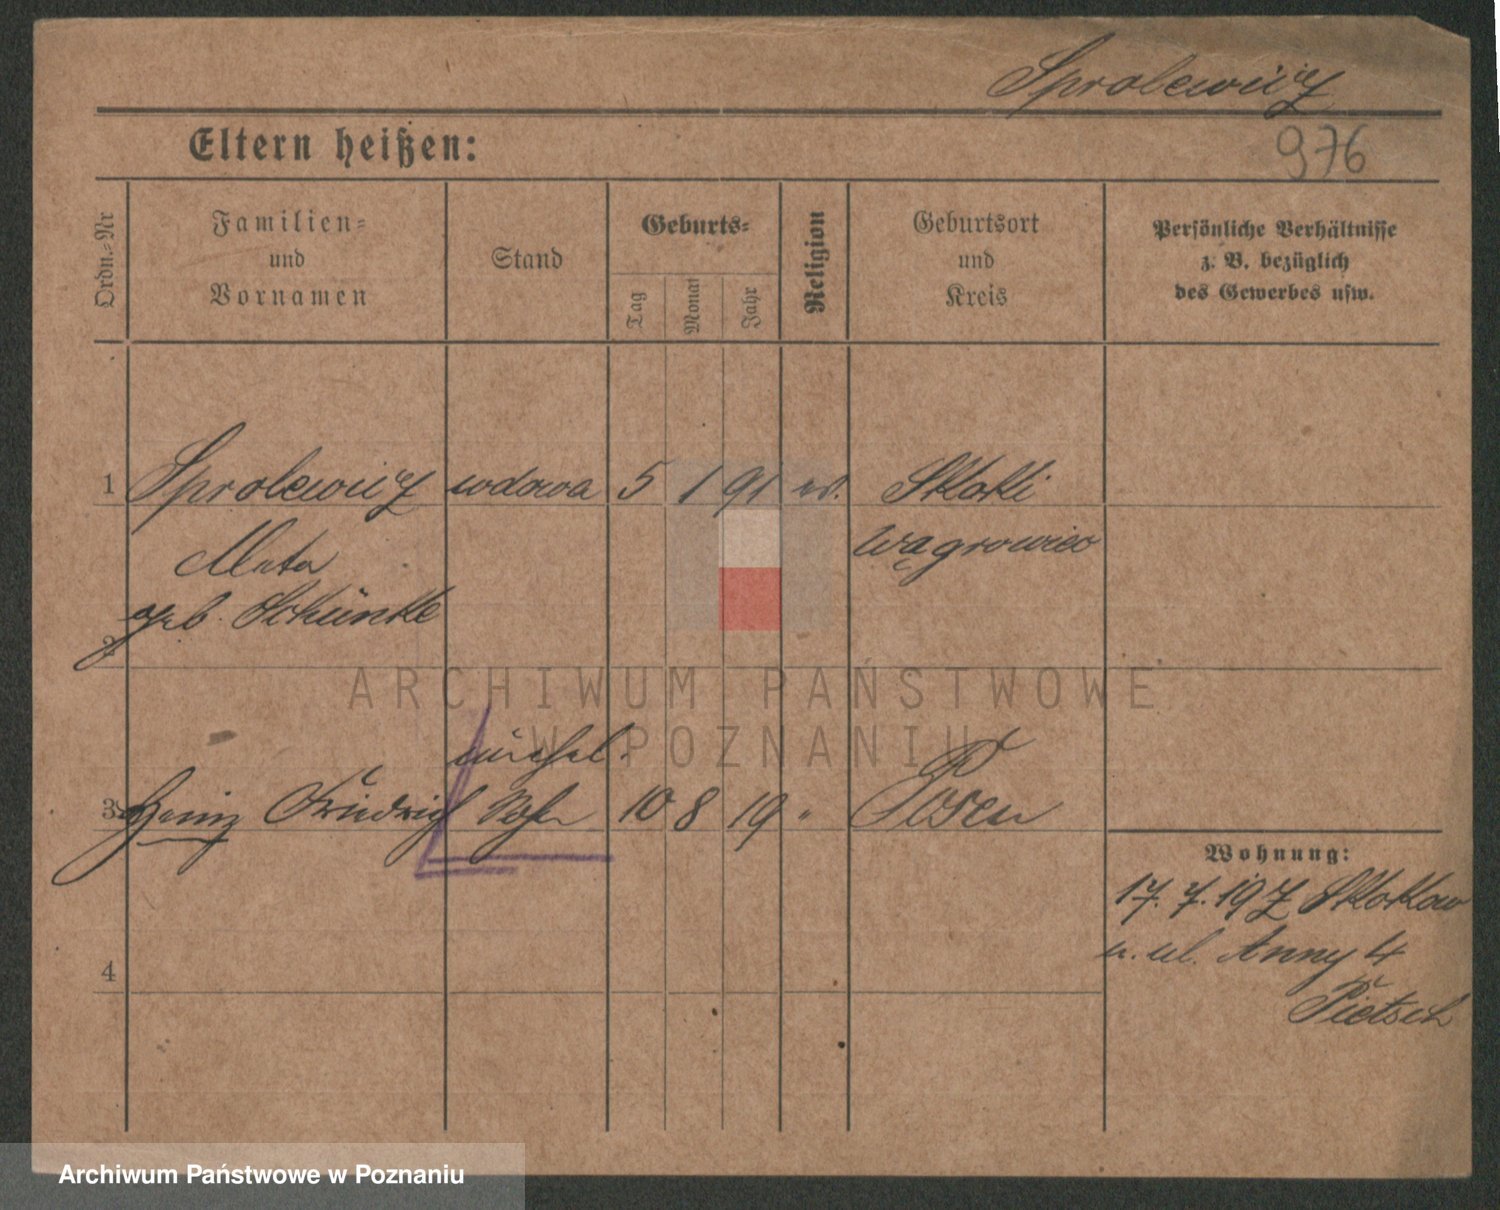 Sprolewicz
976
Eltern heißen:
Ordn.-Nr
Familien-
und
Vornamen
Stand
Geburts-
Tag
Monat
Jahr
Religion
Geburtsort
und
Kreis
Persönliche Verhältnisse
z. B. bezüglich
des Gewerbes usw.
1 Sprolewicz wdowa 5 1 91 ev. Skoki
Meta Wągrowiec
geb. Schünke
2
unehel.
3 Heinz Friedrich Sohn 10 8 19 " Posen
Wohnung:
17. 7. 19 Z Skokow
n. ul. Anny 4
Pietsch
4
ARCHIWUM PAŃSTWOWE
W POZNANIU
Archiwum Państwowe w Poznaniu